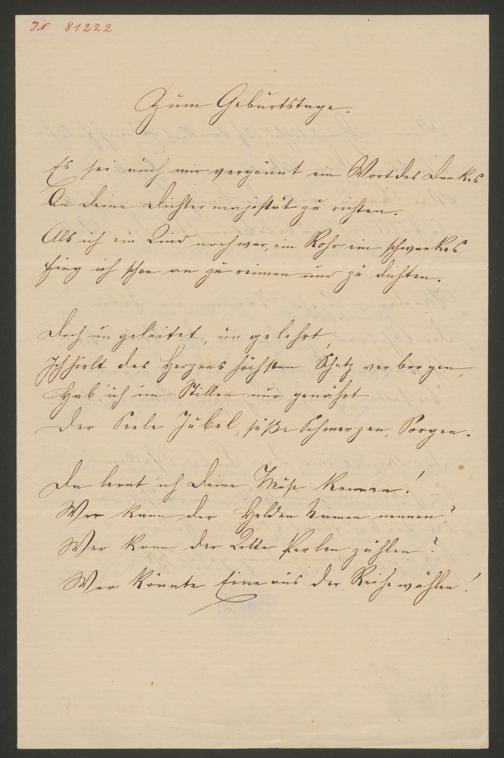 IN 81222
Zum Geburtstage.
Es sei auch mir vergönnt ein Wort des Dankes
An Deine Dichtermajestät zu richten.
Als ich ein Kind noch war, ein Rohr ein schwankes
Fing ich schon an zu reimen und zu dichten.
Doch ungeleitet, ungelehrt,
Ich hielt des Herzens höchsten Schatz verborgen
Hab' ich im Stillen nur genährt
Der Seele Jubel, süße Schmerzen, Sorgen.
Da lernt ich Deine Muse kennen!
Wer kann der Helden Namen nennen?
Wer kann der Kette Perlen zählen?
Wer könnte Eine aus der Reihe wählen!